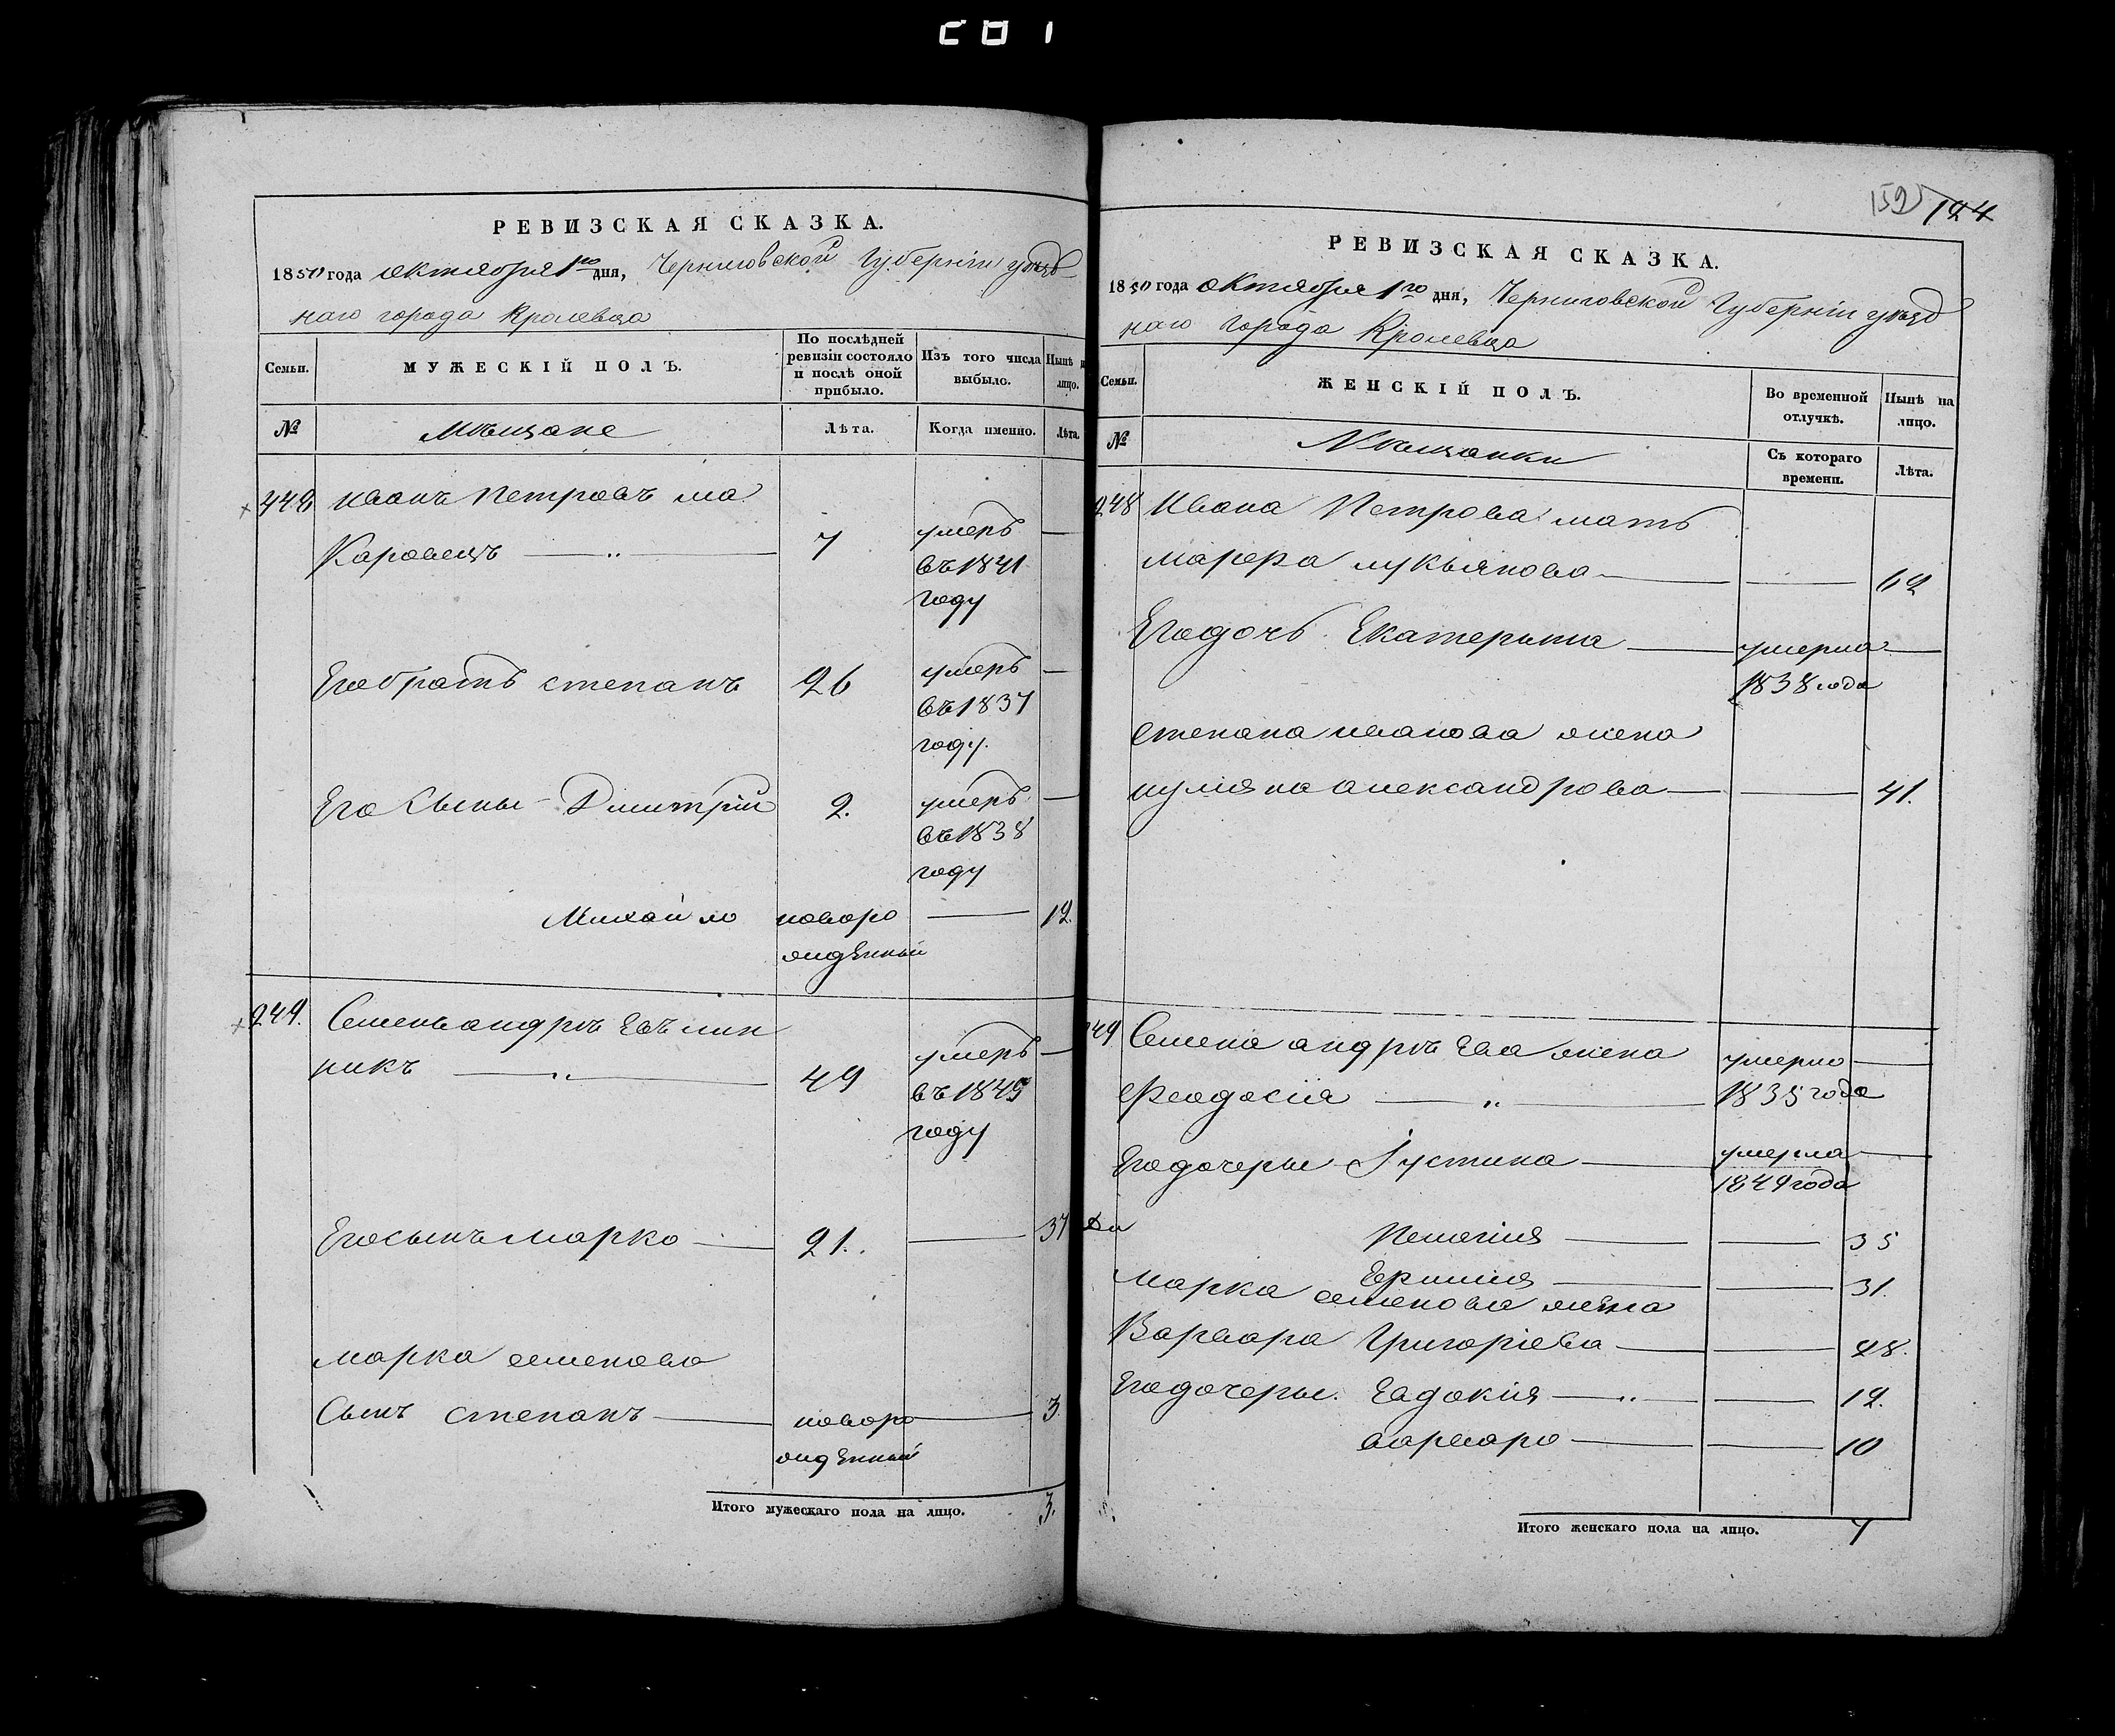 281
РЕВИЗСКАЯ СКАЗКА.
1850 года октября 1го дня, Черниговской Губерніи уѣзд
наго города Кролевца
Семьи.
МУЖЕСКІЙ ПОЛЪ.
По послѣдней
ревизіи состояло
и послѣ оной
прибыло.
Изъ того числа
выбыло.
Нынѣ н
лицо.
№
Мѣщане
Лѣта.
Когда именно.
Лѣта.
248 Иванъ Петровъ Ма
Каровецъ 7 умеръ
въ 1841
году
Его братъ Степанъ 26 умеръ
въ 1837
году.
Его Сыны Дмитрій 2. умеръ
въ 1838
году
Михайло новоро 12.
жденный
249. Семенъ Андрѣевъ
никъ 49 умеръ
въ 1849
году
Его сынъ Марко 21. 37
Марка Семенова
Сынъ Степанъ новоро 3.
жденный
Итого мужескаго пола на лицо. 3.
159 124
РЕВИЗСКАЯ СКАЗКА.
1850 года октября 1го дня, Черниговской Губерніи уѣзд
наго Города Кролевца
Семьи.
ЖЕНСКІЙ ПОЛЪ.
Во временной
отлучкѣ.
Нынѣ на
лицо.
№
Мѣщанки
Съ котораго
времени.
Лѣта.
248 Ивана Петрова мать
Марфа Лукьянова 62
Его дочь Екатерина умерла
1838 года
Степана Иванова жена
Иулияна Александрова 41.
249 Семена Андрѣева жена умерла
Феодосія 1835 года
Его дочери Іустина умерла
1849 года
Пелагия 35
Ефимия 31.
Марка Семенова жена
Варвара Григоріева 28.
Его дочери. Евдокия 12.
Варвара 10
Итого женскаго пола на лицо. 7